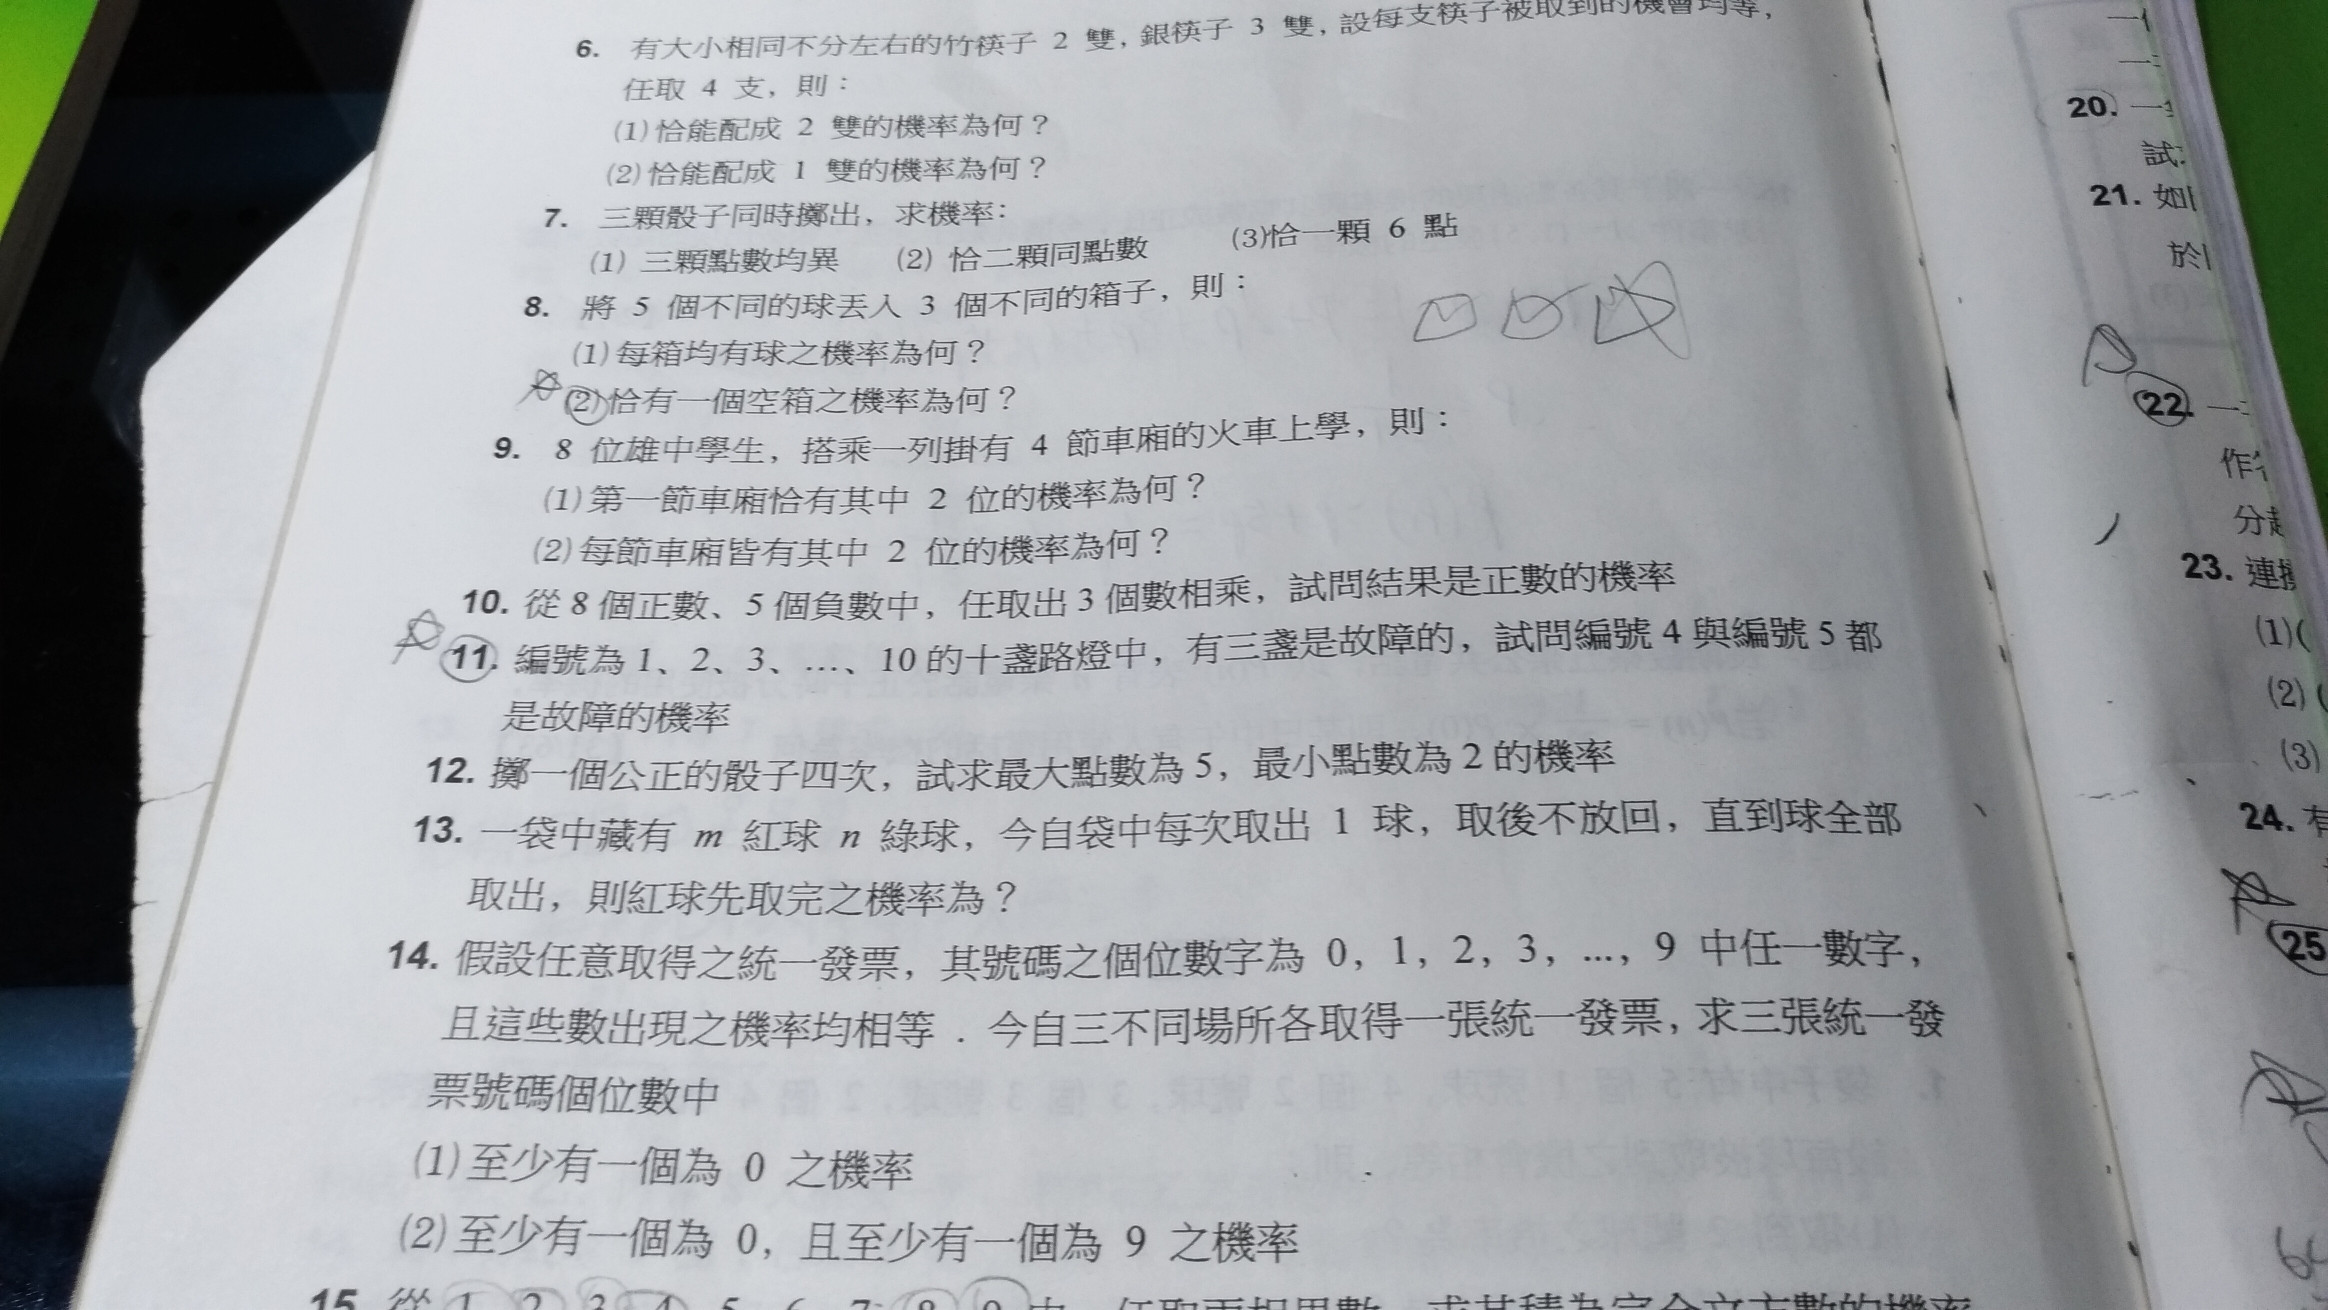 6. 有大小相同不分左右的竹筷子 2 雙, 銀筷子 3 雙, 設每支筷子被取到的機會均等,
任取 4 支, 則:
(1)恰能配成 2 雙的機率為何?
(2)恰能配成 1 雙的機率為何?
7. 三顆骰子同時擲出, 求機率:
(1) 三顆點數均異 (2) 恰二顆同點數 (3)恰一顆 6 點
8. 將 5 個不同的球丟入 3 個不同的箱子, 則:
(1)每箱均有球之機率為何?
(2)恰有一個空箱之機率為何?
9. 8 位雄中學生, 搭乘一列掛有 4 節車廂的火車上學, 則:
(1)第一節車廂恰有其中 2 位的機率為何?
(2)每節車廂皆有其中 2 位的機率為何?
10. 從 8 個正數、5 個負數中, 任取出 3 個數相乘, 試問結果是正數的機率
11. 編號為 1、2、3、…、10 的十盞路燈中, 有三盞是故障的, 試問編號 4 與編號 5 都
是故障的機率
12. 擲一個公正的骰子四次, 試求最大點數為 5, 最小點數為 2 的機率
13. 一袋中藏有 m 紅球 n 綠球, 今自袋中每次取出 1 球, 取後不放回, 直到球全部
取出, 則紅球先取完之機率為?
14. 假設任意取得之統一發票, 其號碼之個位數字為 0, 1, 2, 3, …, 9 中任一數字,
且這些數出現之機率均相等．今自三不同場所各取得一張統一發票, 求三張統一發
票號碼個位數中
(1)至少有一個為 0 之機率
(2)至少有一個為 0, 且至少有一個為 9 之機率
15. 從 1 2 3 4 5 6 7 8 9 中, 任取兩相異數, 求其積為完全立方數的機率
20. 一
試
21. 如
於
22. 一
作
分
23. 連
(1)(
(2)(
(3)
24. 有
25